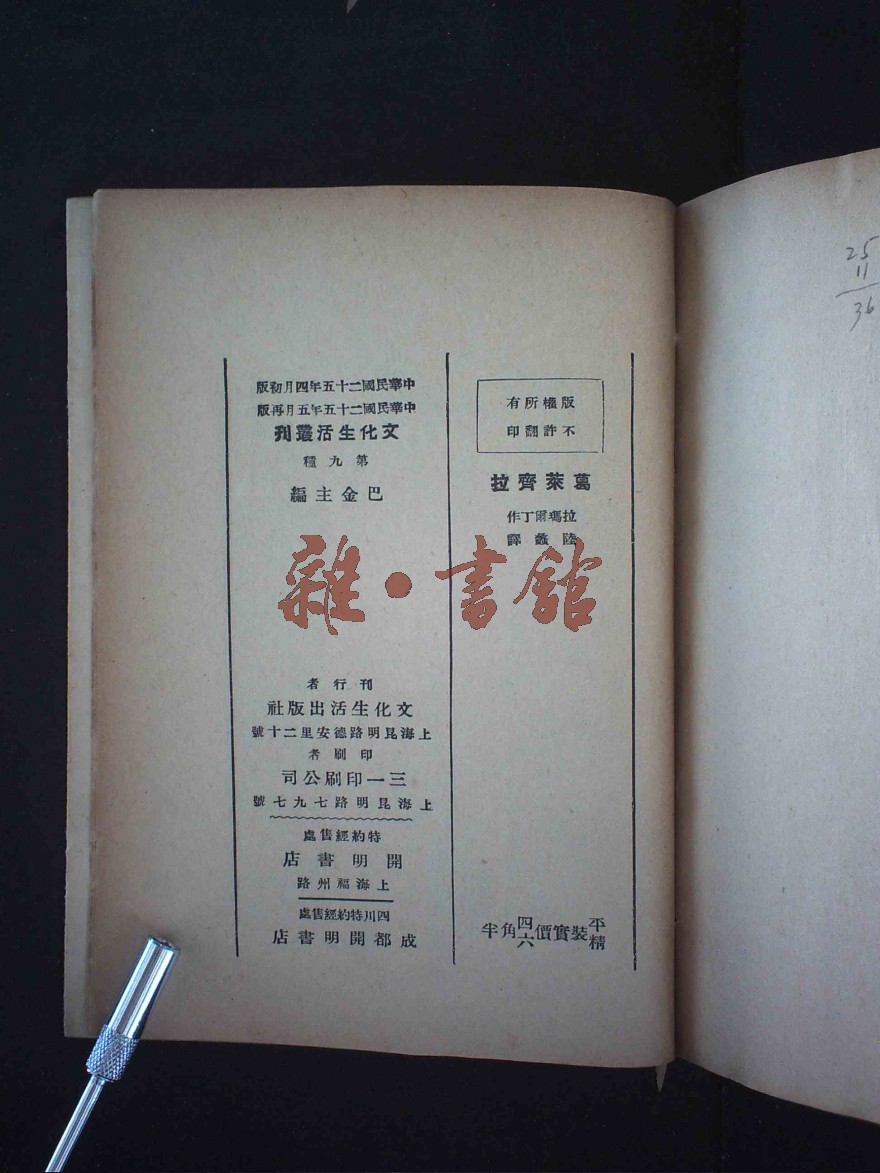 版權所有
不許翻印
葛萊齊拉
拉瑪爾丁作
陸蠡譯
平精裝實價四六角半
中華民國二十五年四月初版
中華民國二十五年五月再版
文化生活叢刊
第九種
巴金主編
刊行者
文化生活出版社
上海昆明路德安里二十號
印刷者
三一印刷公司
上海昆明路七九七號
特約經售處
開明書店
上海福州路
四川特約經售處
成都開明書店
雜·書館
25
11
36